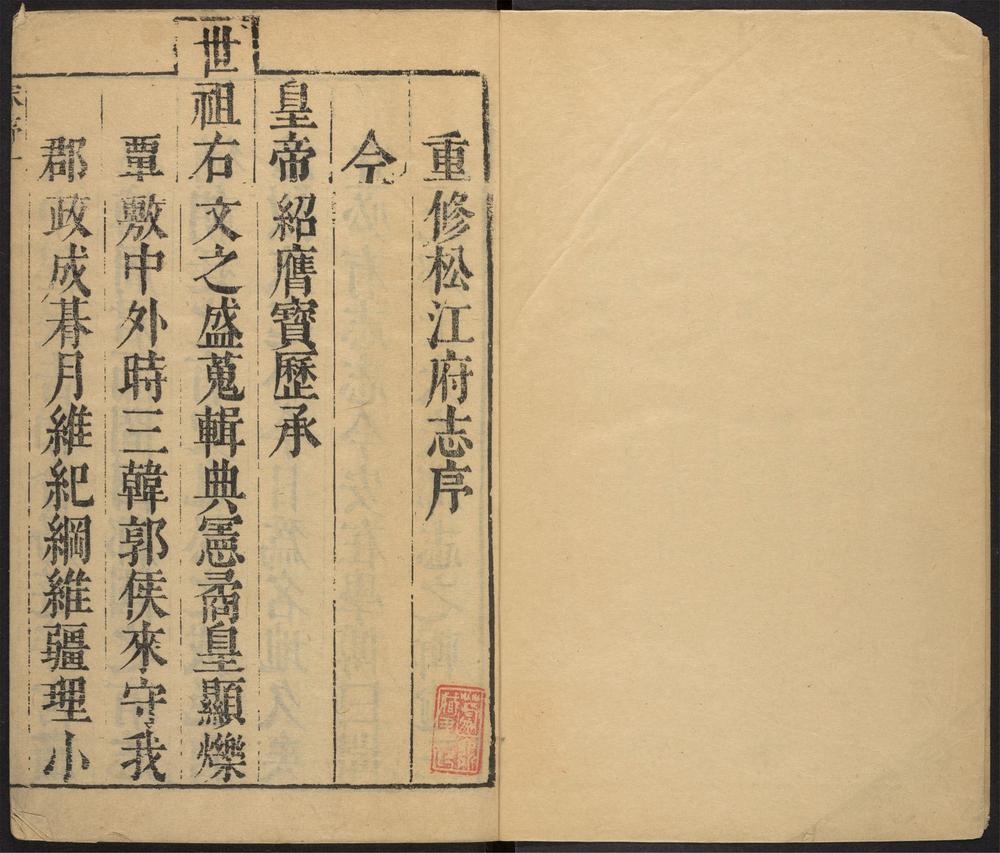 重修松江府志序
今
皇帝紹膺寶歷承
世祖右文之盛蒐輯典憲矞皇顯爍
覃敷中外時三韓郭侯來守我
郡政成朞月維紀綱維疆理小